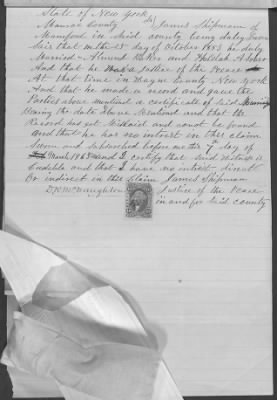 State of New York
Monroe County } SS James Shipman of
Mumford in said county being duly sworn
Says that on the 13" day of October 1853 he duly
Married Almund and Huldah A
And that he was a Justice of the Peace
At that time in Wayne County New York
And that he made a record and gave the
Parties above mentioned a certificate of said Marriage
Bearing the date above Mentioned and that the
Record has got Mislaid and cannot be found
and that he has no interest in this claim
Sworn and subscribed before me this 7th day of
March 1865 and I certify that said witness is
Credible and that I have no interest direct
Or indirect in this claim James Shipman
D McNaughton Justice of the Peace
in and for said county